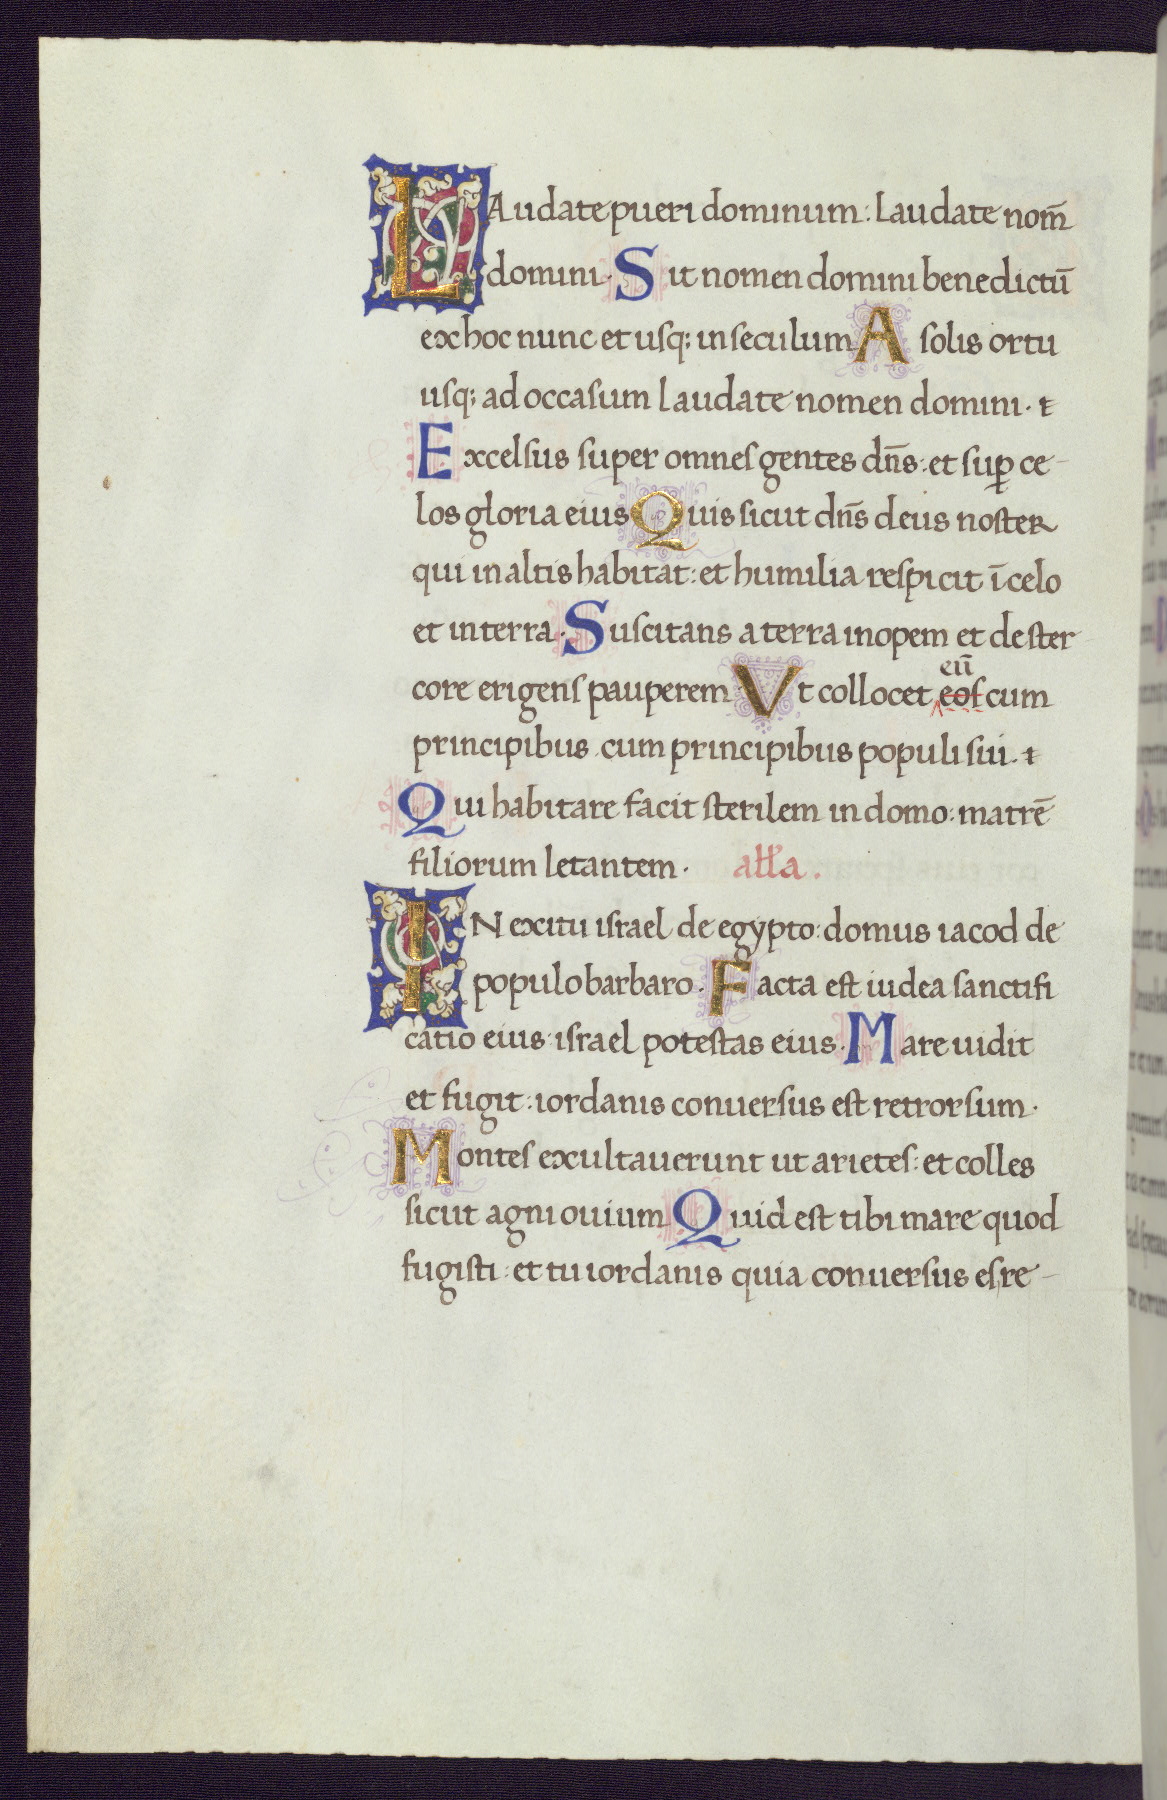 LAudate pueri dominum: Laudate nom̄
domini. Sit nomen domini benedictū
ex hoc nunc et usq; in seculum A solis ortu
usq; ad occasum Laudate nomen domini. t
Excelsus super omnes gentes dn̄s: et sup̱ ce-
los gloria eius Quis sicut dn̄s deus noster
qui in altis habitat: et humilia respicit ī celo
et in terra. Suscitans a terra inopem et de ster
eū
core erigens pauperem Vt collocet eos cum
principibus. cum principibus populi sui. t
Qui habitare facit sterilem in domo: matrē
filiorum letantem. alła.
IN exitu israel de egypto: domus iacod de
populo barbaro. Facta est iudea sanctifi
catio eius: israel potestas eius. Mare uidit
et fugit: iordanis conuersus est retrorsum.
Montes excultauerunt ut arietes: et colles
sicut agni ouium Quid est tibi mare quod
fugisti: et tu iordanis quia conuersus es re-